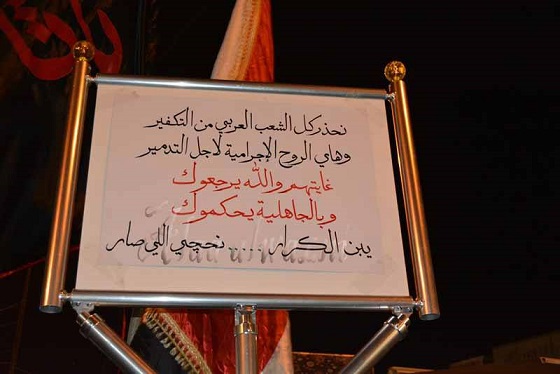 نحذر كل الشعب العربي من التكفير
وهاي الروح الإجرامية لاجل التدمير
غايتهم والله يرجعوك
وبالجاهلية يحكموك
يبن الكرار ..... نحچي اللي صار